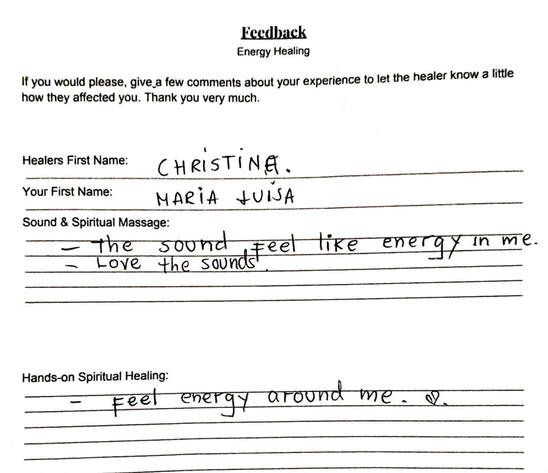 Feedback
Energy Healing
If you would please, give a few comments about your experience to let the healer know a little
how they affected you. Thank you very much.
Healers First Name: CHRISTINA.
Your First Name: MARIA LUISA
Sound & Spiritual Massage:
- The sound, Feel like energy in me.
- Love the sounds
Hands-on Spiritual Healing:
- Feel energy around me. ♡.